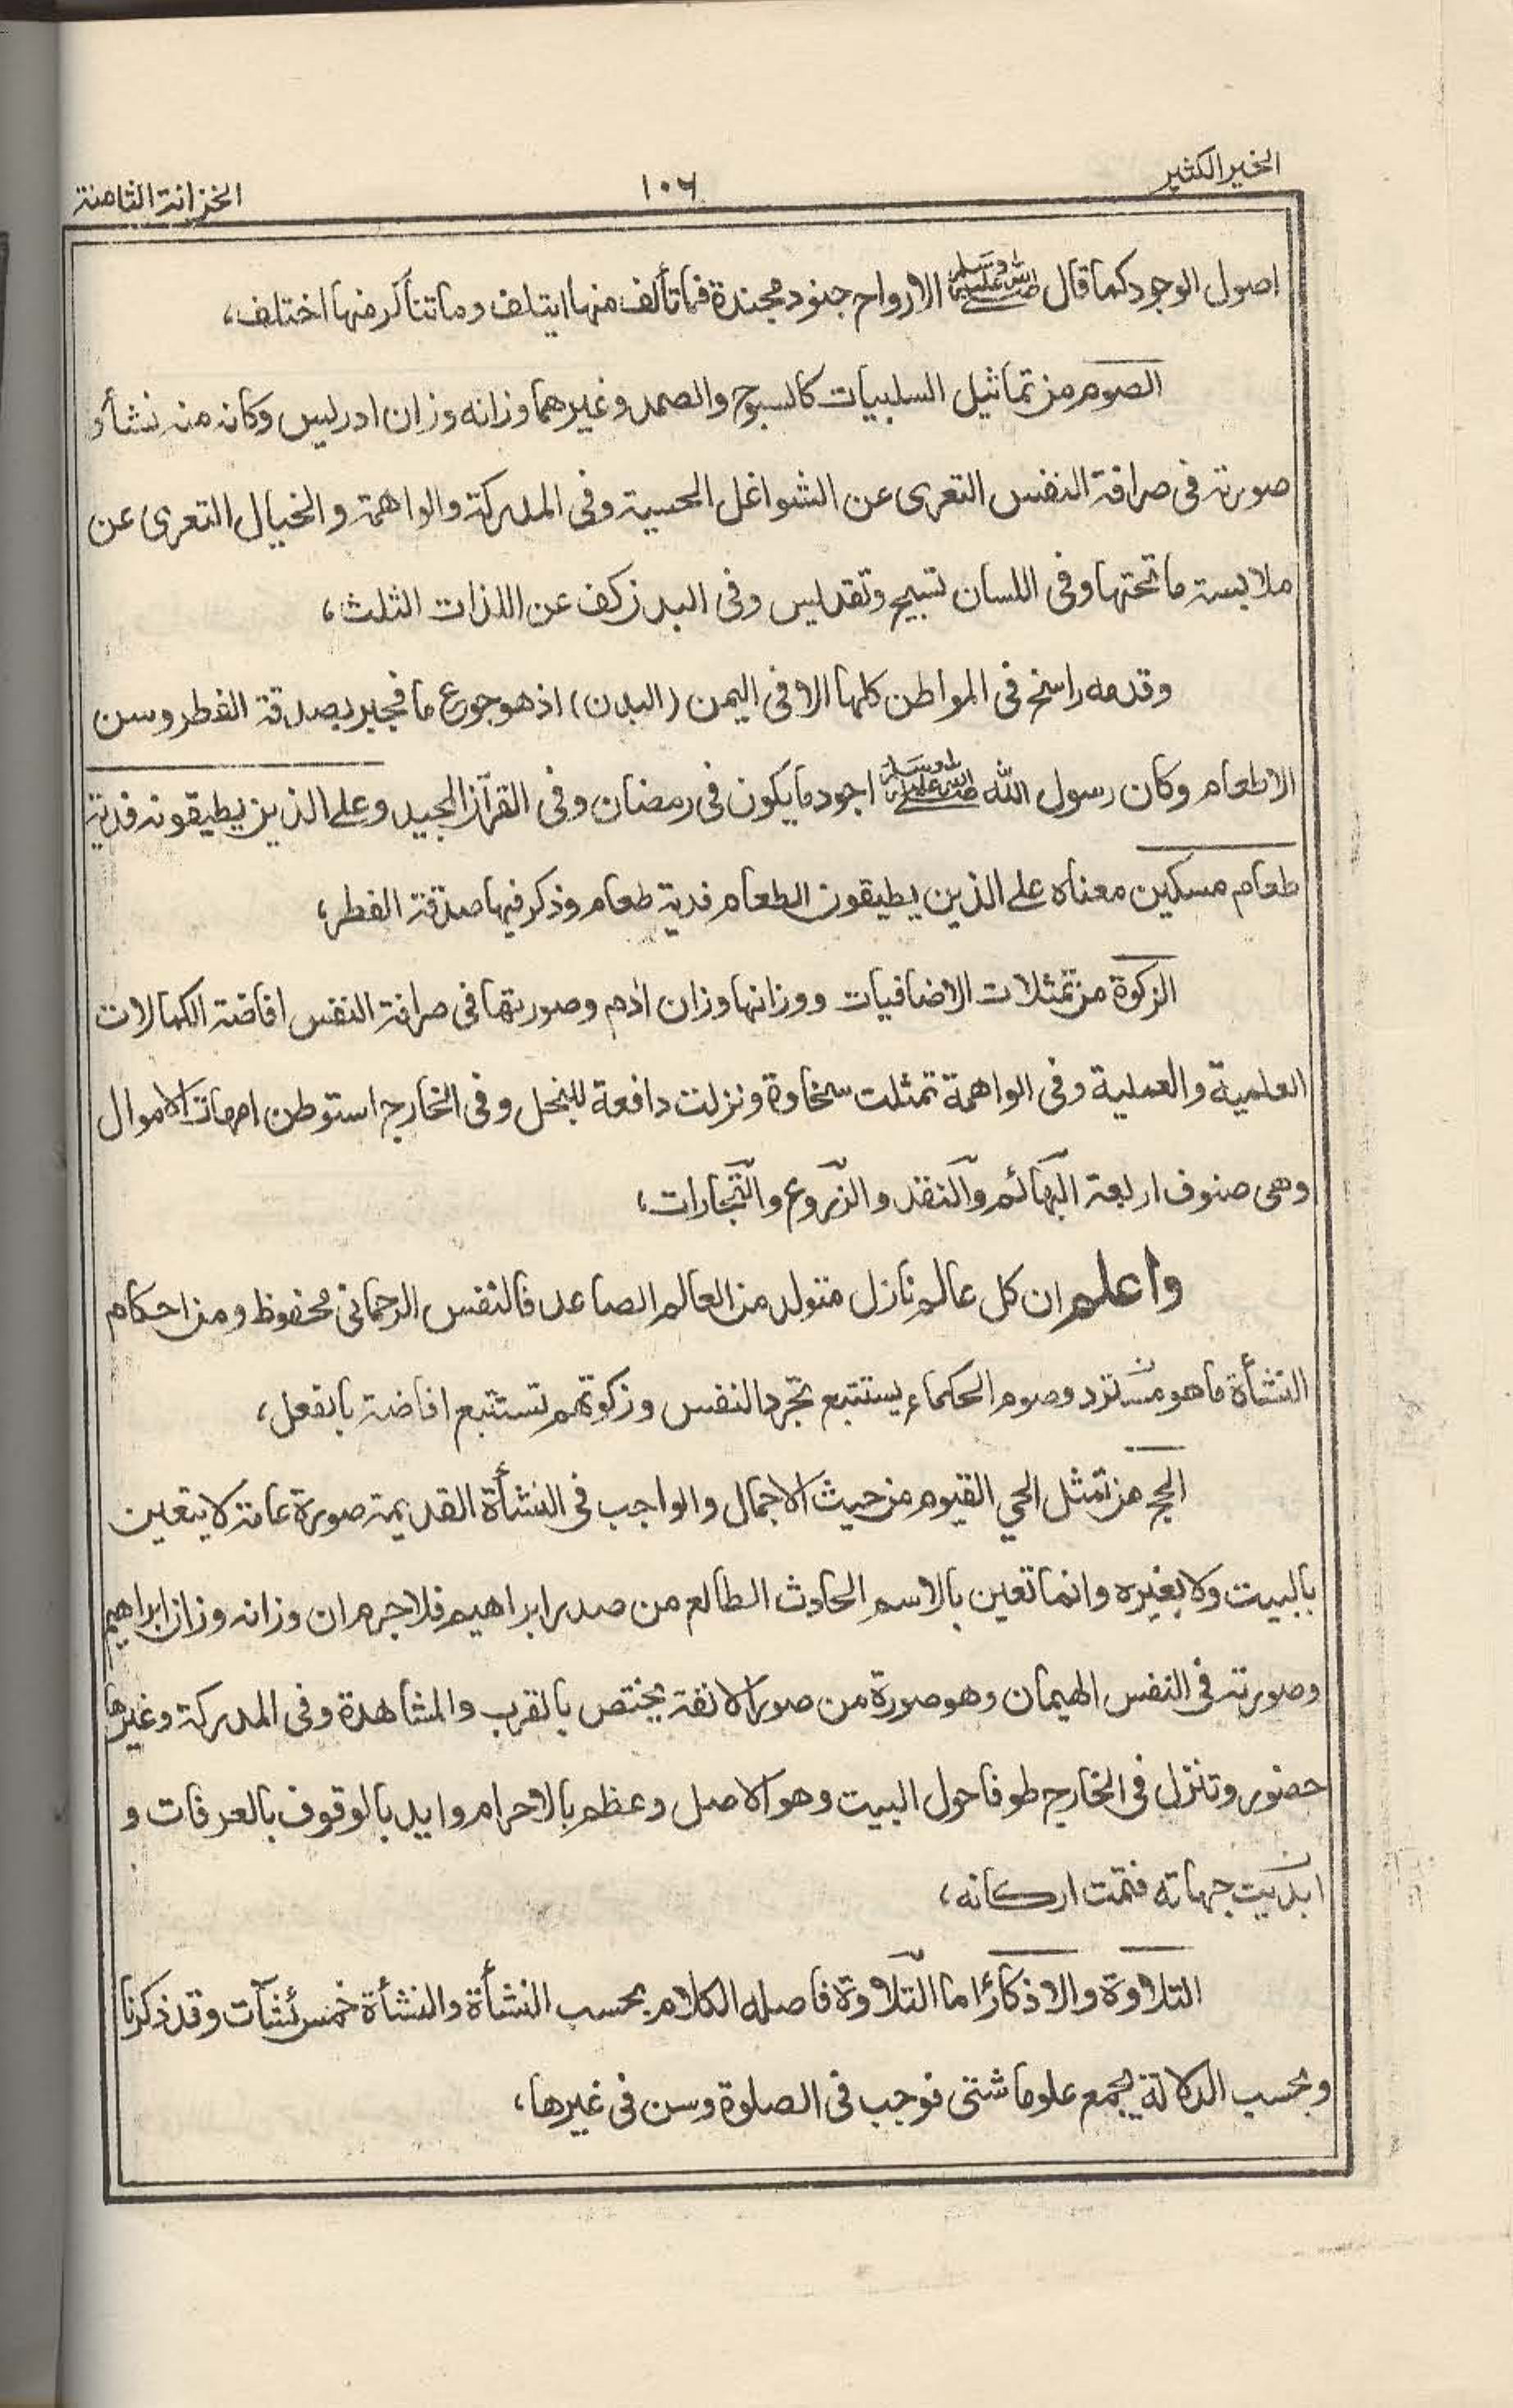 الخير الكثير
١٠٦
الخزانة الثامنة
اصول الوجود كما قال صلى الله عليه وسلم الارواح جنود مجندة فما تألف منها ايتلف وما تناكر منها اختلف،
الصوم من تماثيل السلبيات كالسبوح والصمد وغيرهما وزانه وزان ادريس وكانه منه نشأ و
صورته فى صرافة النفس التعرى عن الشواغل الحسية وفى المدركة والواهمة والخيال التعرى عن
ملابسة ما تحتها وفى اللسان تسبيح وتقديس وفى البدن كف عن اللذات الثلث،
وقدمه راسخ فى المواطن كلها الا فى اليمن (البدن) اذ هو جوع ما فيجبر بصدقة الفطر وسن
الاطعام وكان رسول الله صلى الله عليه وسلم اجود ما يكون فى رمضان وفى القرآن المجيد وعلى الذين يطيقونه فدية
طعام مسكين معناه على الذين يطيقون الطعام فدية طعام وذكر فيها صدقة الفطر،
الزكوة من تمثلات الاضافيات ووزانها وزان اٰدم وصورتها فى صرافة النفس افاضة الكمالات
العلمية والعملية وفى الواهمة تمثلت سخاوة ونزلت دافعة للبخل وفى الخارج استوطن امهات الاموال
وهى صنوف اربعة البهائم والنقد والزروع والتجارات،
واعلم ان كل عالم نازل متولد من العالم الصاعد فالنفس الرحمانى محفوظ ومن احكام
النشأة ما هو مسترد وصوم الحكماء يستتبع تجرد النفس وزكوتهم تستتبع افاضة بالفعل،
الحج من تمثل الحي القيوم من حيث الاجمال والواجب فى النشأة القديمة صورة عامة لا يتعين
بالبيت ولا بغيره وانما تعين بالاسم الحادث الطالع من صدر ابراهيم فلا جرم ان وزانه وزان ابراهيم
وصورته فى النفس الهيمان وهو صورة من صور الانفة يختص بالقرب والمشاهدة وفى المدركة وغيرها
حضور وتنزل فى الخارج طوفا حول البيت وهو الاصل وعظم بالاحرام وايد بالوقوف بالعرفات و
جهاته فتمت اركانه،
التلاوة والاذكار اما التلاوة فاصله الكلام بحسب النشأة والنشأة خمس نشآت وقد ذكرنا
وبحسب الدلالة يجمع علوما شتى فوجب فى الصلوة وسن فى غيرها،